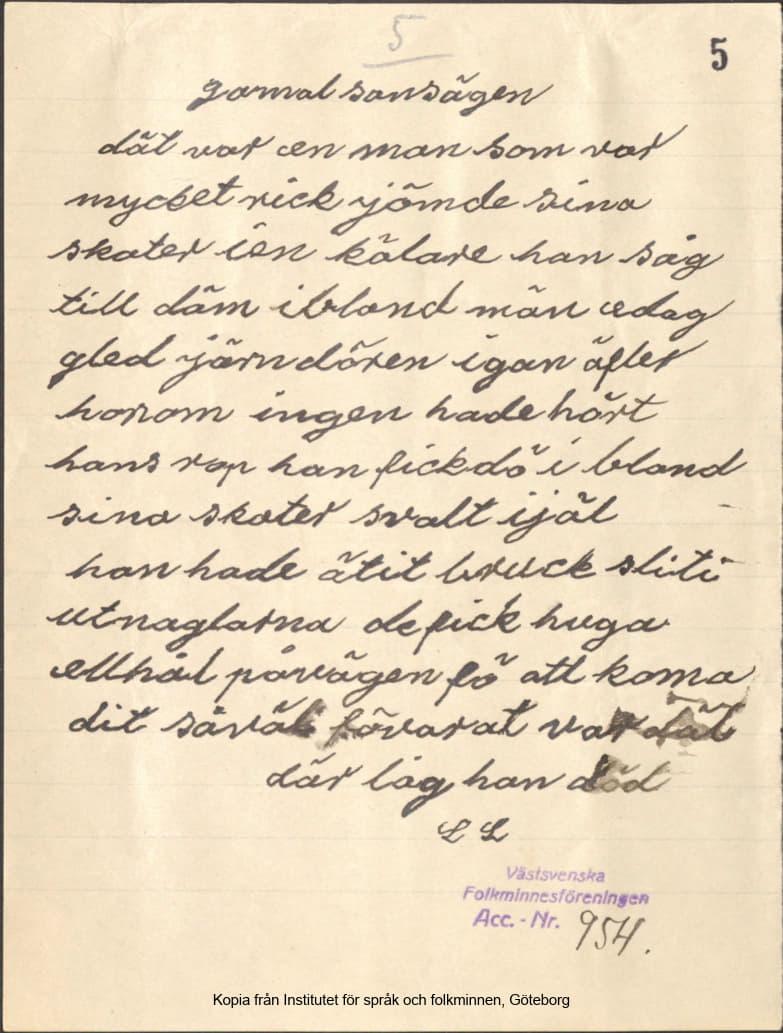 5
5
gamal sansägen
dät var en man som var
mycket rick jömde sina
skater i en källare han såg
till däm ibland män edag
gled järndören igan äfter
honom ingen hade hört
hans rop han fick dö i bland
sina skater svalt ijäl
han hade ätit bruck sliti
ut naglarna de fick huga
ett hål på vägen fö att koma
dit så väl förvarat var dät
där låg han död
L L
Västsvenska
Folkminnesföreningen
Acc. - Nr. 954.
Kopia från Institutet för språk och folkminnen, Göteborg